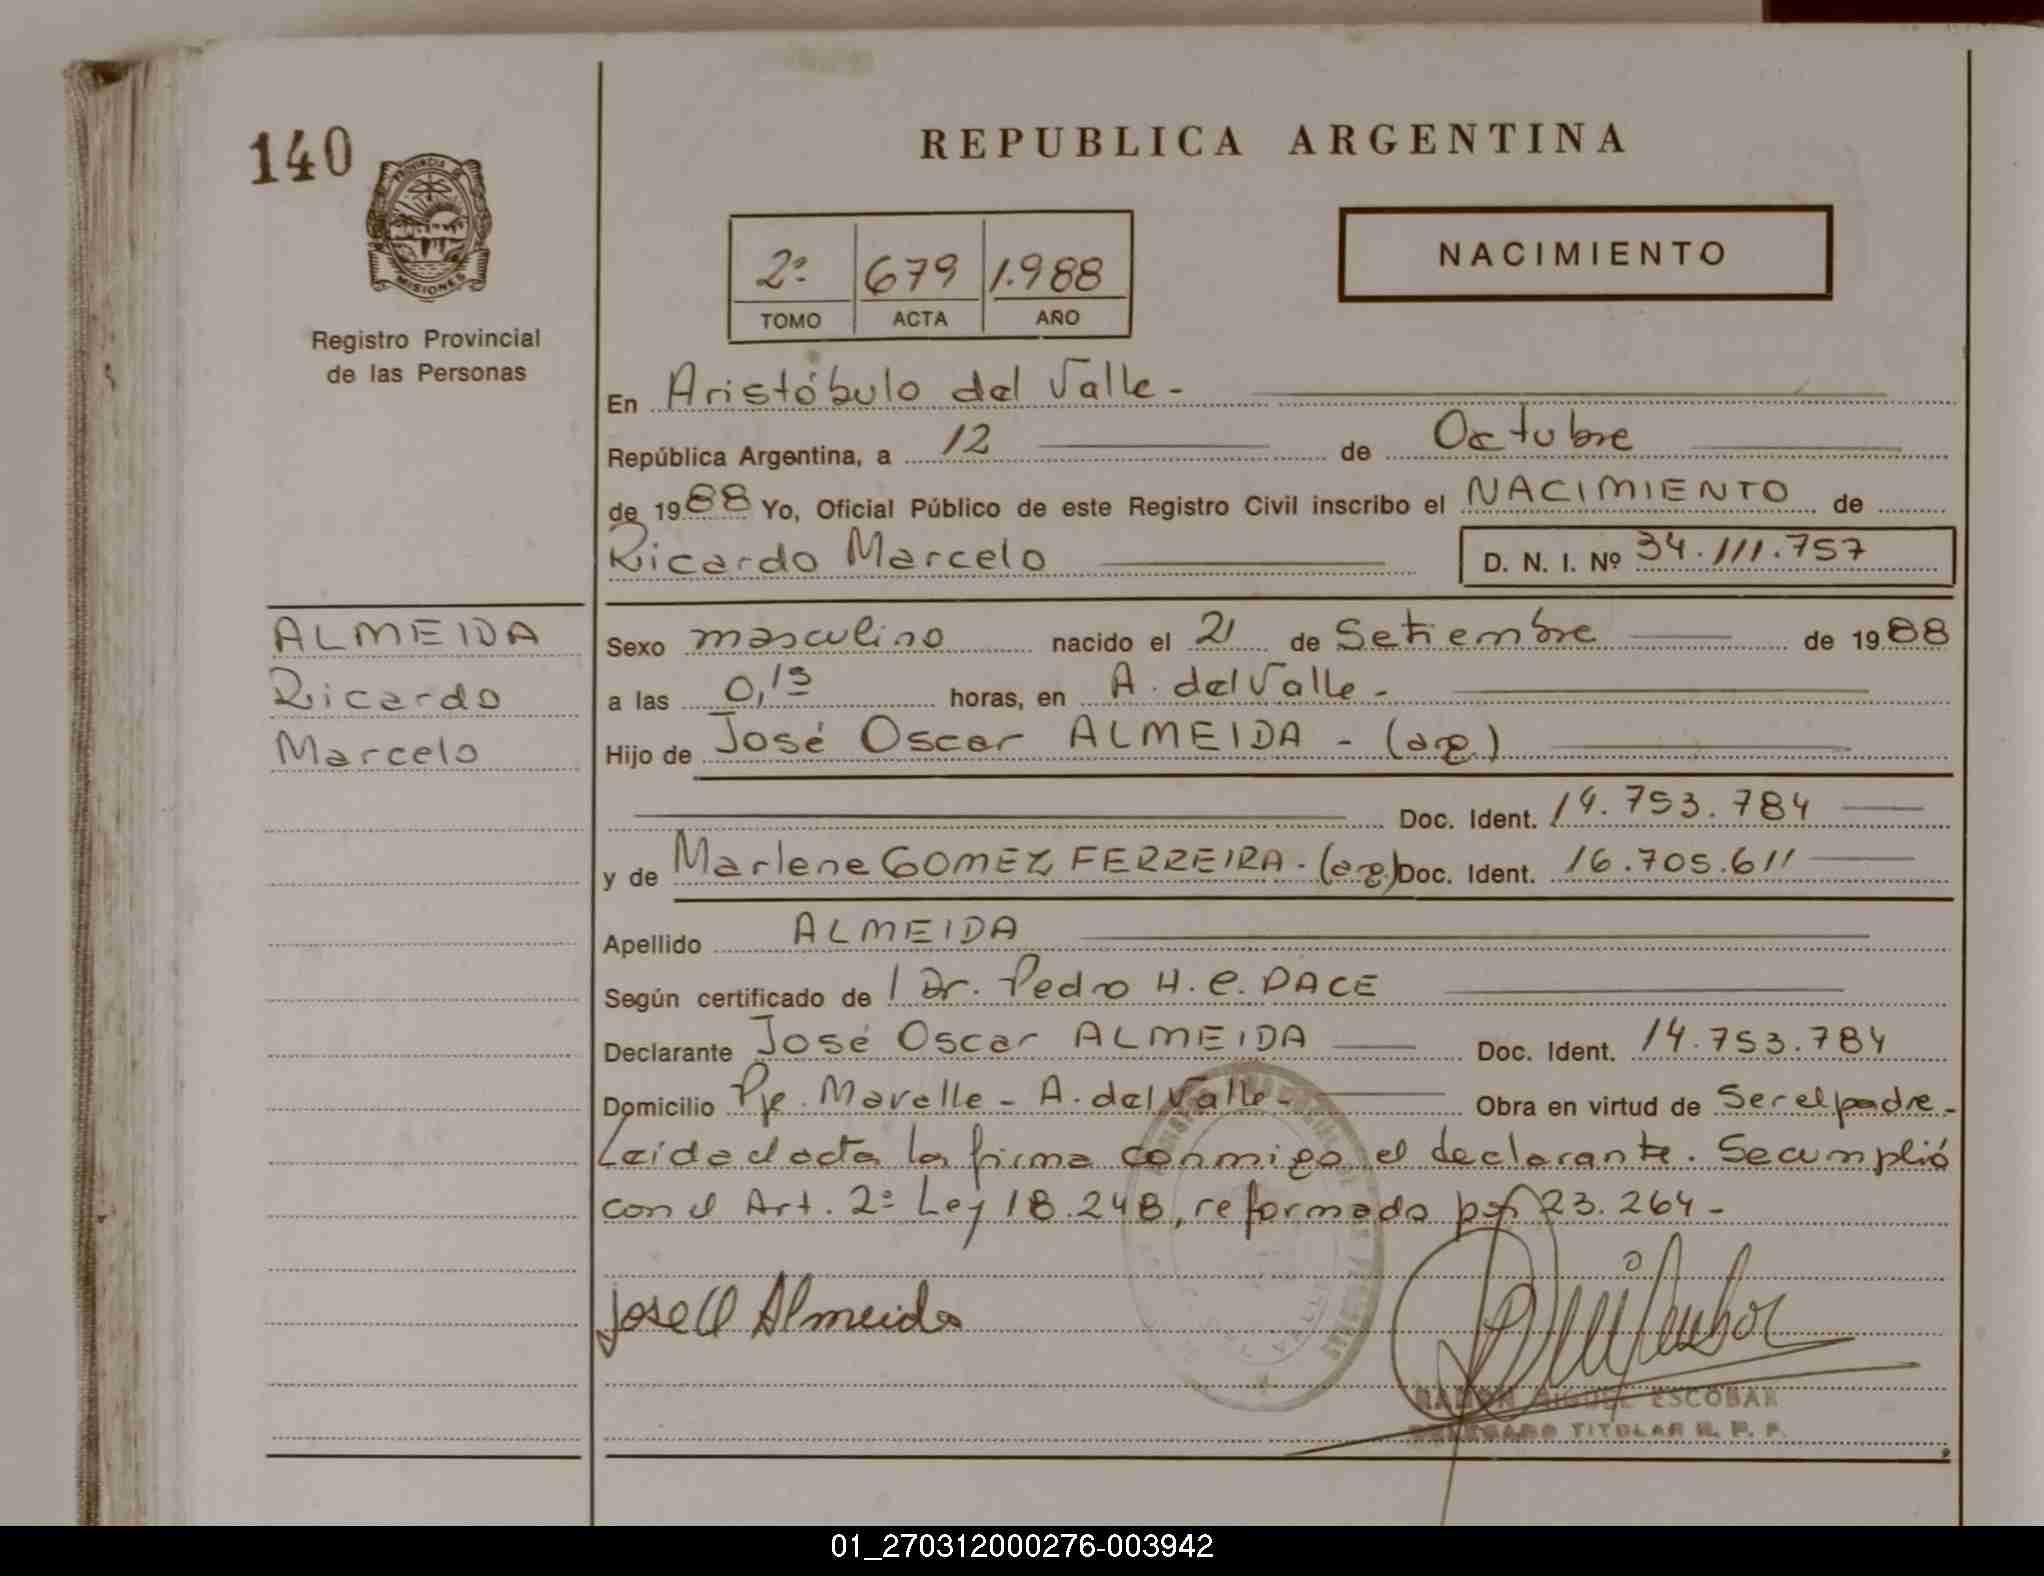 140
PROVINCIA DE
MISIONES
Registro Provincial
de las Personas
REPUBLICA ARGENTINA
2º 679 1.988
TOMO ACTA AÑO
NACIMIENTO
En Aristóbulo del Valle -
República Argentina, a 12 de Octubre
de 1988 Yo, Oficial Público de este Registro Civil inscribo el NACIMIENTO de
Ricardo Marcelo D. N. I. Nº 34.111.757
ALMEIDA
Ricardo
Marcelo
Sexo masculino nacido el 21 de Setiembre de 1988
a las 0,15 horas, en A. del Valle -
Hijo de José Oscar ALMEIDA - (arg)
Doc. Ident. 14.753.784
y de Marlene GOMEZ FERREIRA - (arg) Doc. Ident. 16.705.611
Apellido ALMEIDA
Según certificado de l Dr. Pedro H. C. PACE
Declarante José Oscar ALMEIDA Doc. Ident. 14.753.784
Domicilio Pje. Mavalle - A. del Valle - Obra en virtud de Ser el padre -
Leída el acta la firma conmigo el declarante. Se cumplió
con el Art. 2º Ley 18.248, reformado por 23.264 -
Jose O Almeida
RAMON MIGUEL ESCOBAR
DELEGADO TITULAR R. P. P.
01_270312000276-003942